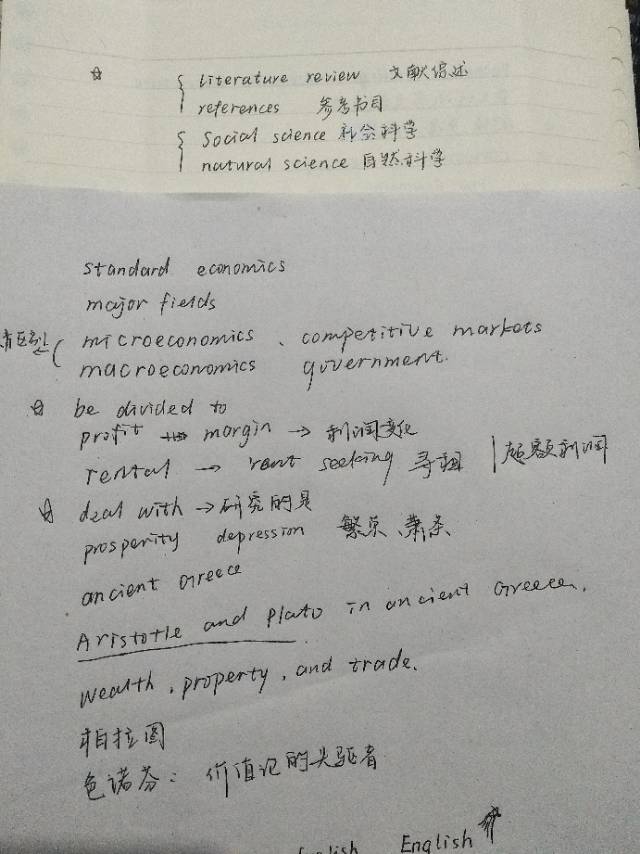 ☆ literature review 文献综述
references 参考书目
social science 社会科学
natural science 自然科学
standard economics
major fields
microeconomics、competitive markets
macroeconomics government.
☆ be divided to
profit margin → 利润变化
rental → rent seeking 寻租 | 超额利润
☆ deal with → 研究的是
prosperity depression 繁荣、萧条
ancient Greece
Aristotle and Plato in ancient Greece.
wealth, property, and trade.
柏拉图
色诺芬: 价值论的先驱者
English English